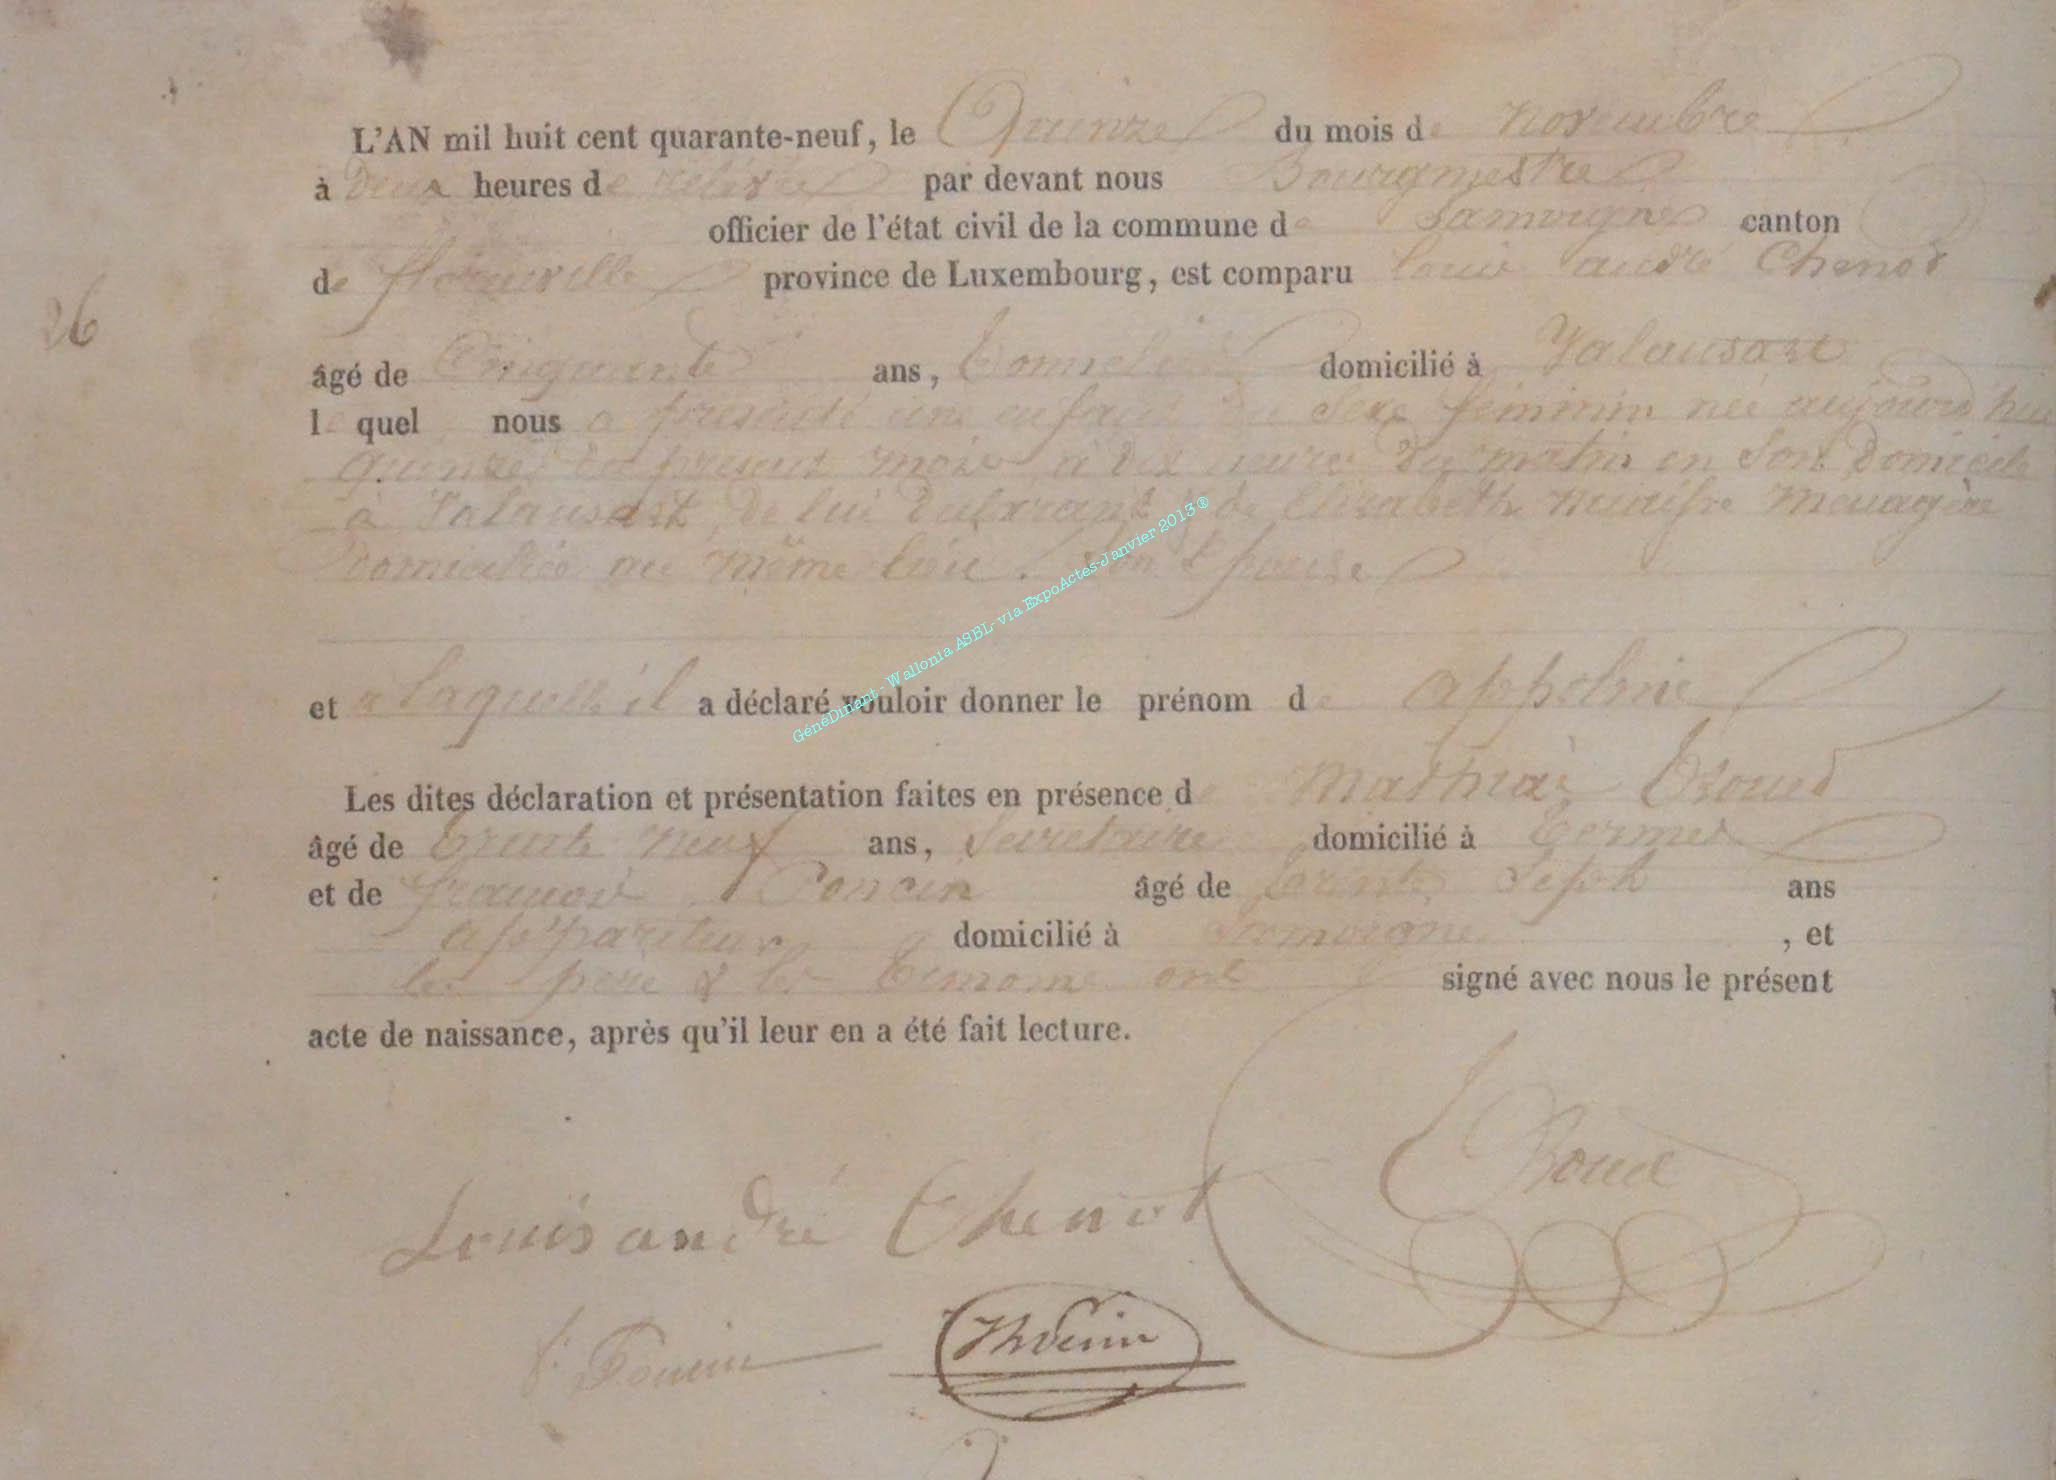 L'AN mil huit cent quarante-neuf, le Quinze du mois de novembre
à deux heures de relevée par devant nous Bourgmestre
officier de l'état civil de la commune de Jamoigne canton
de florenville province de Luxembourg, est comparu louis andré Chenot
26
âgé de Cinquante ans, domicilié à Valansart
le quel nous a présenté un enfant du Sexe féminin née aujourd'hui
quinze du présent mois à dix heures du matin en son Domicile
à Valansart, de lui Déclarant & de Elisabeth menagère
domiciliée au même lieu. Son Epouse
et a laquelle il a déclaré vouloir donner le prénom de appolinie
Les dites déclaration et présentation faites en présence de Mathias
âgé de trente neuf ans, Secretaire domicilié à termes
et de françois Poncin âgé de trente Sept ans
appariteur domicilié à Jamoigne, et
les père & les temoins ont signé avec nous le présent
acte de naissance, après qu'il leur en a été fait lecture.
Louis andré Chenot
f: Poncin
GénéDinant - Wallonia ASBL- via ExpoActes-Janvier 2013®